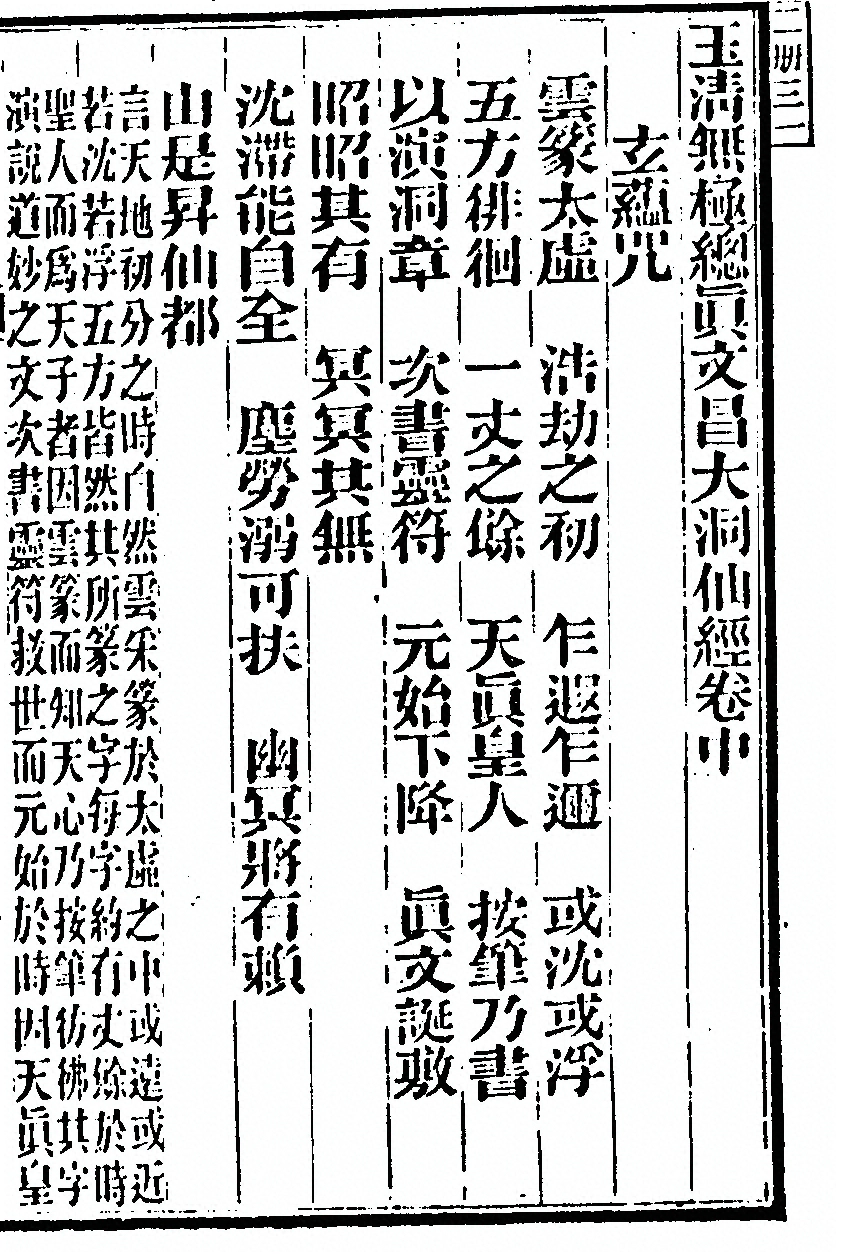 玉清無極總眞文昌大洞仙經卷中
玄蘊咒
雲篆太虛　浩劫之初　乍遐乍邇　或沈或浮
五方徘徊　一丈之餘　天眞皇人　按筆乃書
以演洞章　次書靈符　元始下降　眞文誕敷
昭昭其有　冥冥其無
沈滯能自全　塵勞溺可扶　幽冥將有賴
由是昇仙都
言天地初分之時自然雲采篆於太虛之中或遠或近
若沈若浮五方皆然其所篆之字每字約有丈餘於時
聖人而爲天子者因雲篆而知天心乃按筆彷彿其字
演說道妙之文次書靈符救世而元始於時因天眞皇